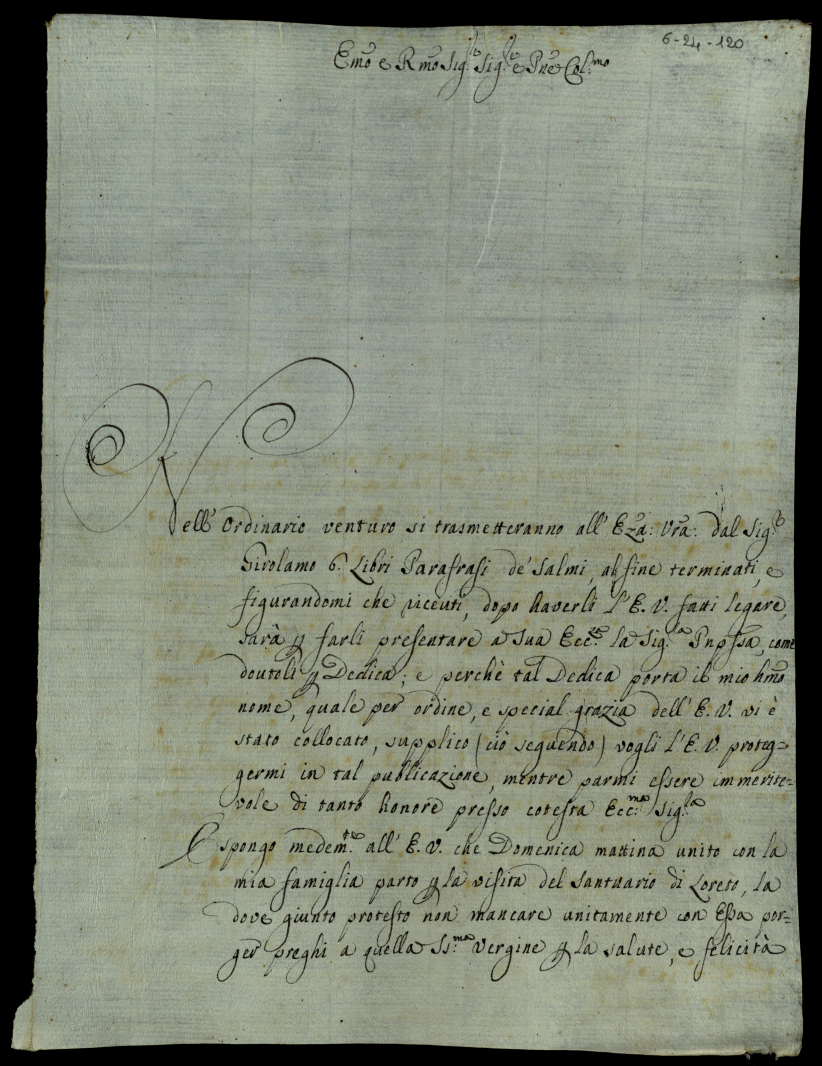 6-24-120
Emo e Rmo Sig.r Sig.r e Pne Col.mo
Nell' Ordinario venturo si trasmetteranno all' Eza: Vra: dal Sig.r
Girolamo 6. Libri Parafrasi de' Salmi, alfine terminati, e
figurandomi che riceuti, dopo haverli l'E. V. fatti legare,
sarà p farli presentare a Sua Ecc.za la Sig.ra Pnpssa, come
doutoli p Dedica; e perchè tal Dedica porta il mio hmo
nome, quale per ordine, e special grazia dell' E. V. vi è
stato collocato, supplico (ciò seguendo) vogli l'E. V. proteg=
germi in tal publicazione, mentre parmi essere immerite=
vole di tanto honore presso cotesta Ecc.ma Sig.ra
Espongo medem.te all' E. V. che Domenica mattina unito con la
mia famiglia parto p la visita del Santuario di Loreto, la
dove giunto protesto non mancare unitamente con Essa por=
ger preghi a quella Ss.ma Vergine p la salute, e felicità